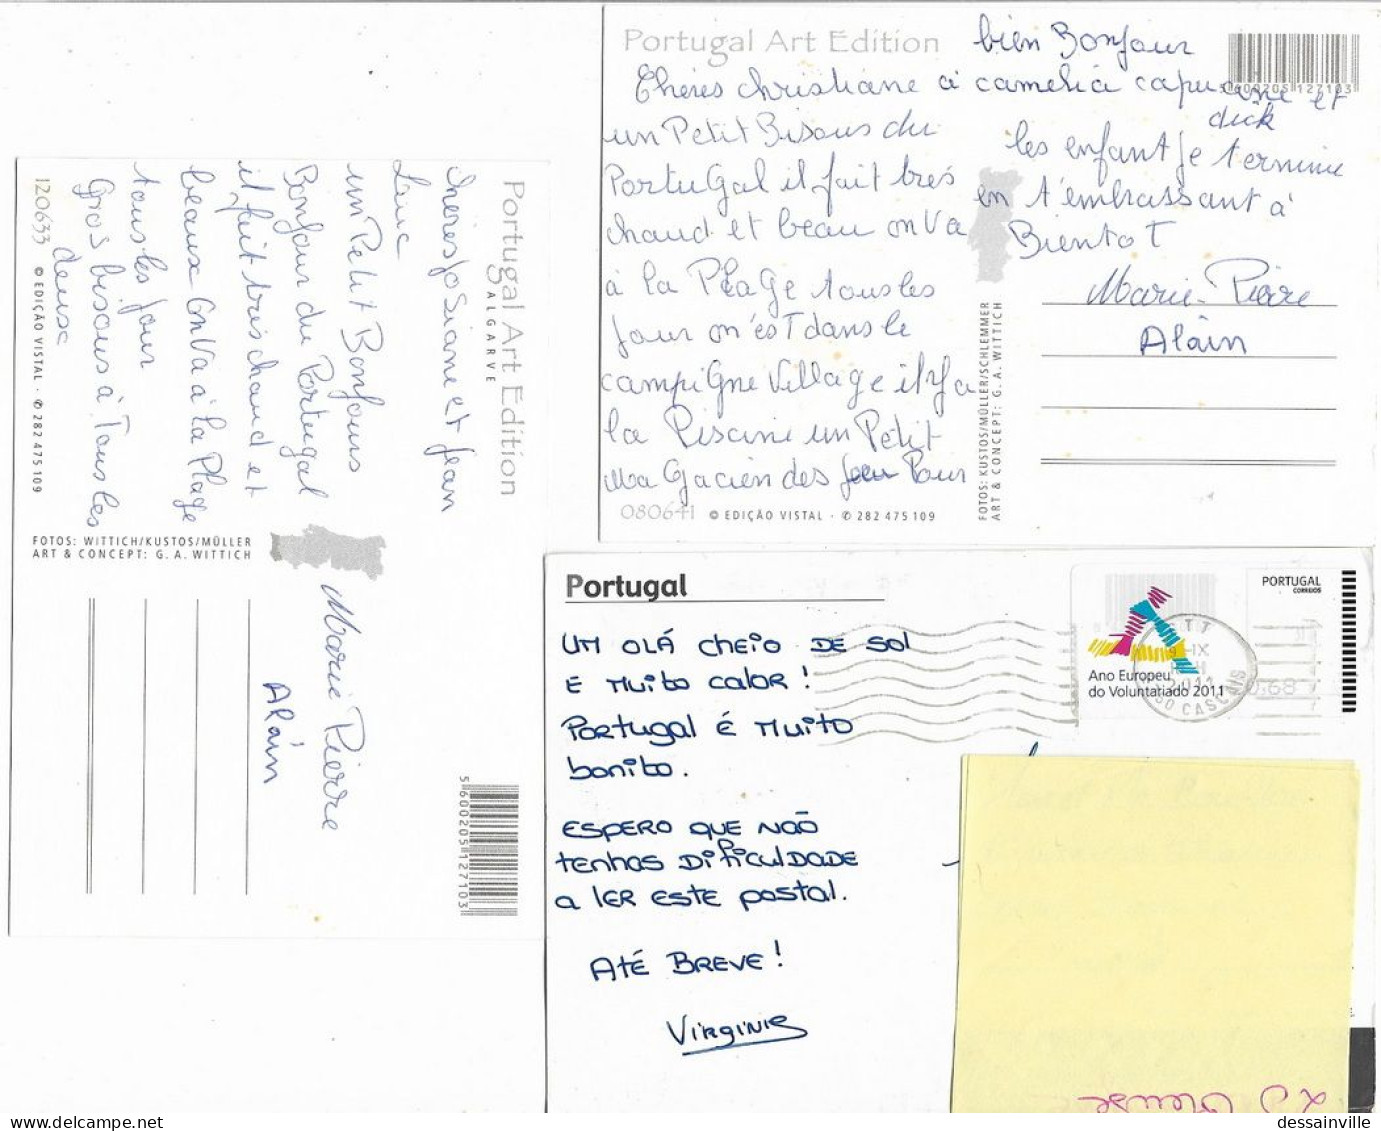 Portugal Art Edition
ALGARVE
Cheres Josiane et Jean
Luc
un Petit Bonjours
Bonjour du Portugal
il fait tres chaud et
beaux on va à la Plage
tous les jour
Gros bisous à Tous les
deuse
Marie Pierre
Alain
120633 © EDIÇÃO VISTAL · ✆ 282 475 109
FOTOS: WITTICH/KUSTOS/MÜLLER
ART & CONCEPT: G. A. WITTICH
5 600205 127103
Portugal Art Edition
Chères christiane
un Petit Bisous du
Portugal il fait très
chaud et beau on va
à la Plage tous les
jour on est dans le
campigne village il y a
la Piscine un Petit
Magacien des jeu Pour
080641 © EDIÇÃO VISTAL · ✆ 282 475 109
FOTOS: KUSTOS/MÜLLER/SCHLEMMER
ART & CONCEPT: G. A. WITTICH
5 600205 127103
bien Bonjour
a camelia capucine et
dick
les enfant je termine
en t'embrassant à
Bientot
Marie-Pierre
Alain
Portugal
UM OLÁ CHEIO DE SOL
E MUITO CALOR !
PORTUGAL É MUITO
BONITO.
ESPERO QUE NÃO
TENHAS DIFICULDADE
A LER ESTE POSTAL.
ATÉ BREVE !
VIRGINIE
Ano Europeu
do Voluntariado 2011
PORTUGAL
CORREIOS
0,68
CASCAIS
Creuse
dessainville